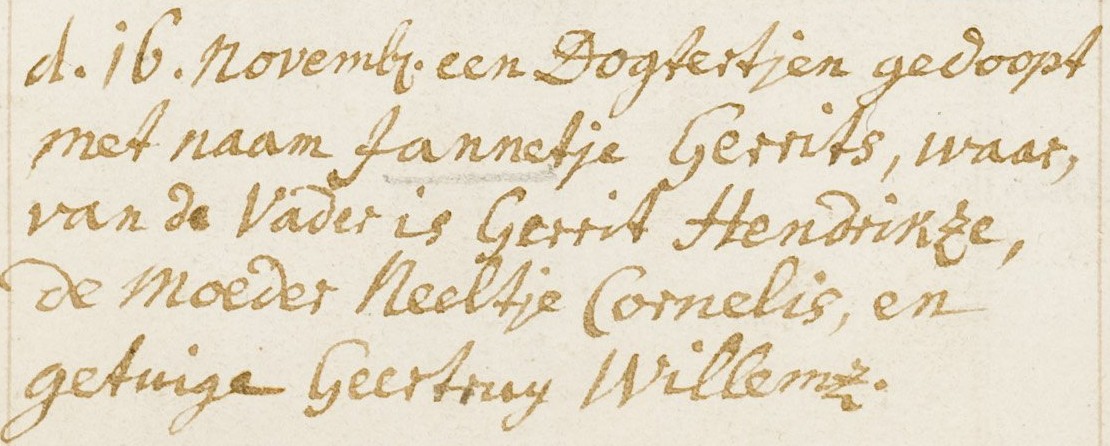 d. 16. Novembr. een Dogtertjen gedoopt
met naam Jannetje Gerrits, waar,
van de Vader is Gerrit Hendrikze,
de Moeder Neeltje Cornelis, en
getuige Geertruy Willemz.